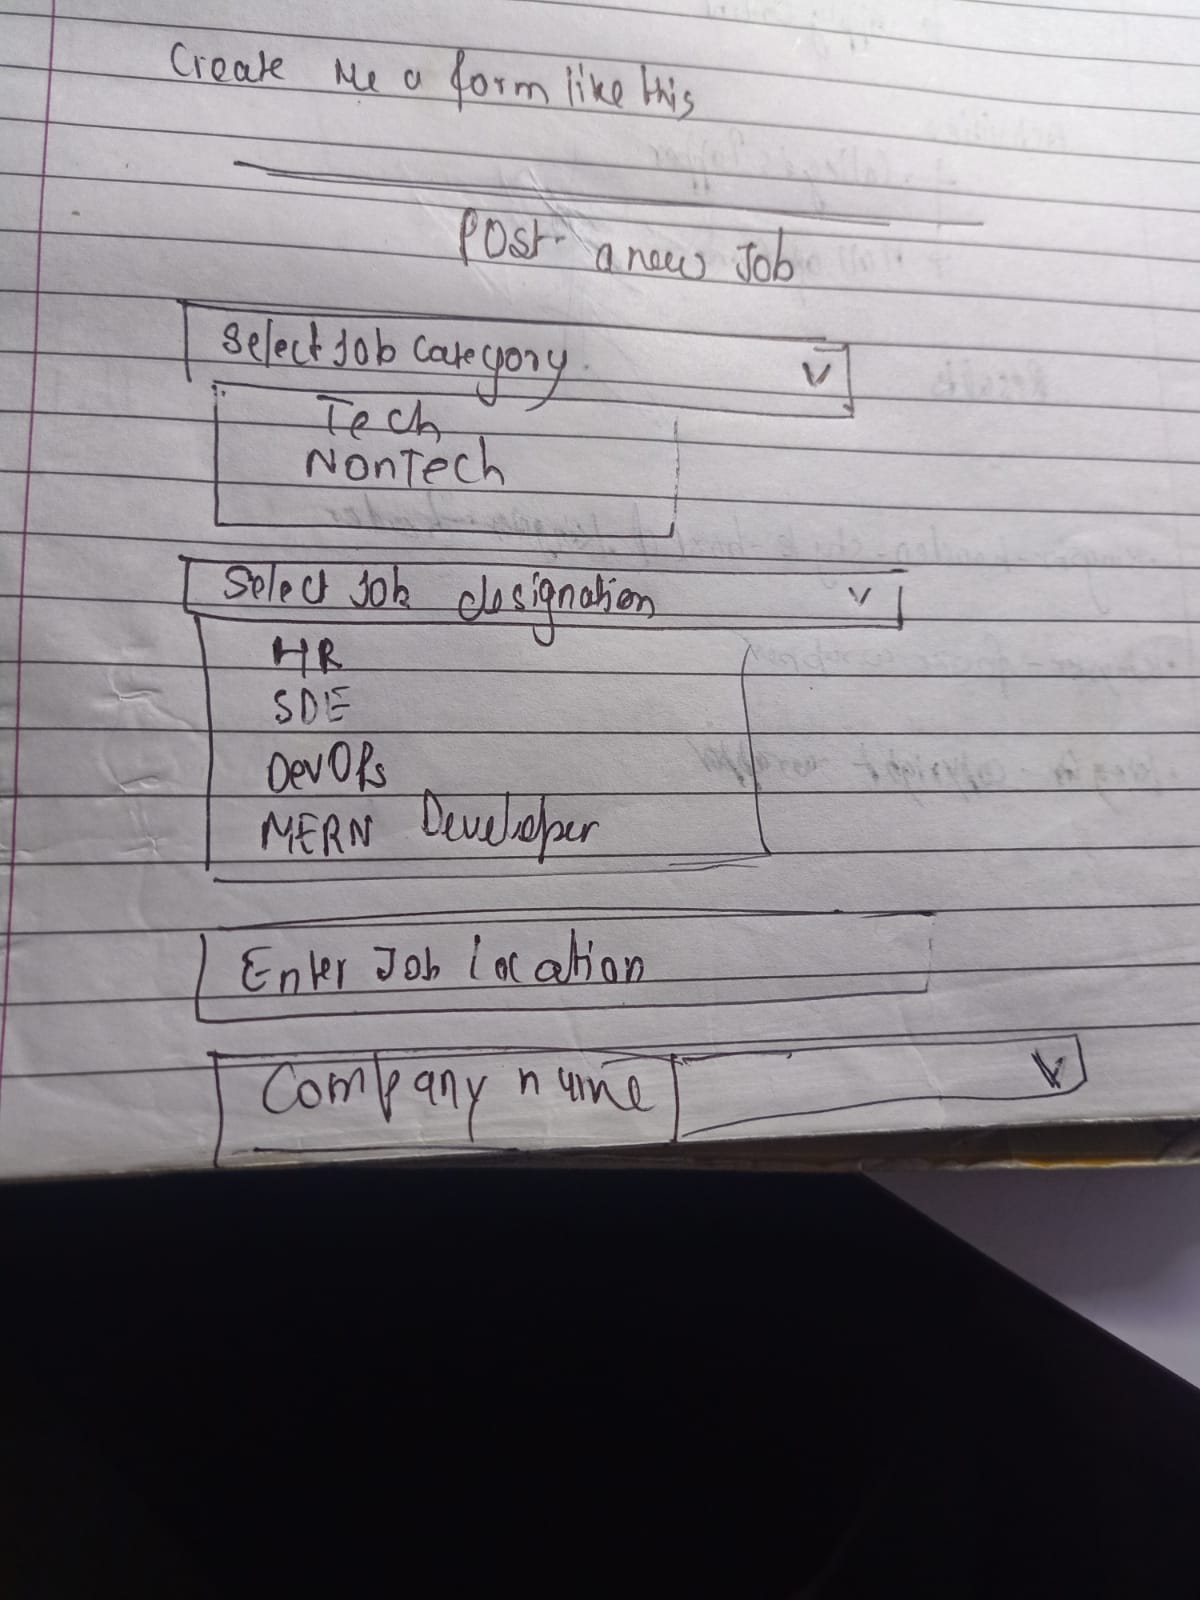 Create Me a form like this
Post a new Job
Select Job Category.
Tech
NonTech
Select Job designation
HR
SDE
DevOPs
MERN Developer
Enter Job location
Company name